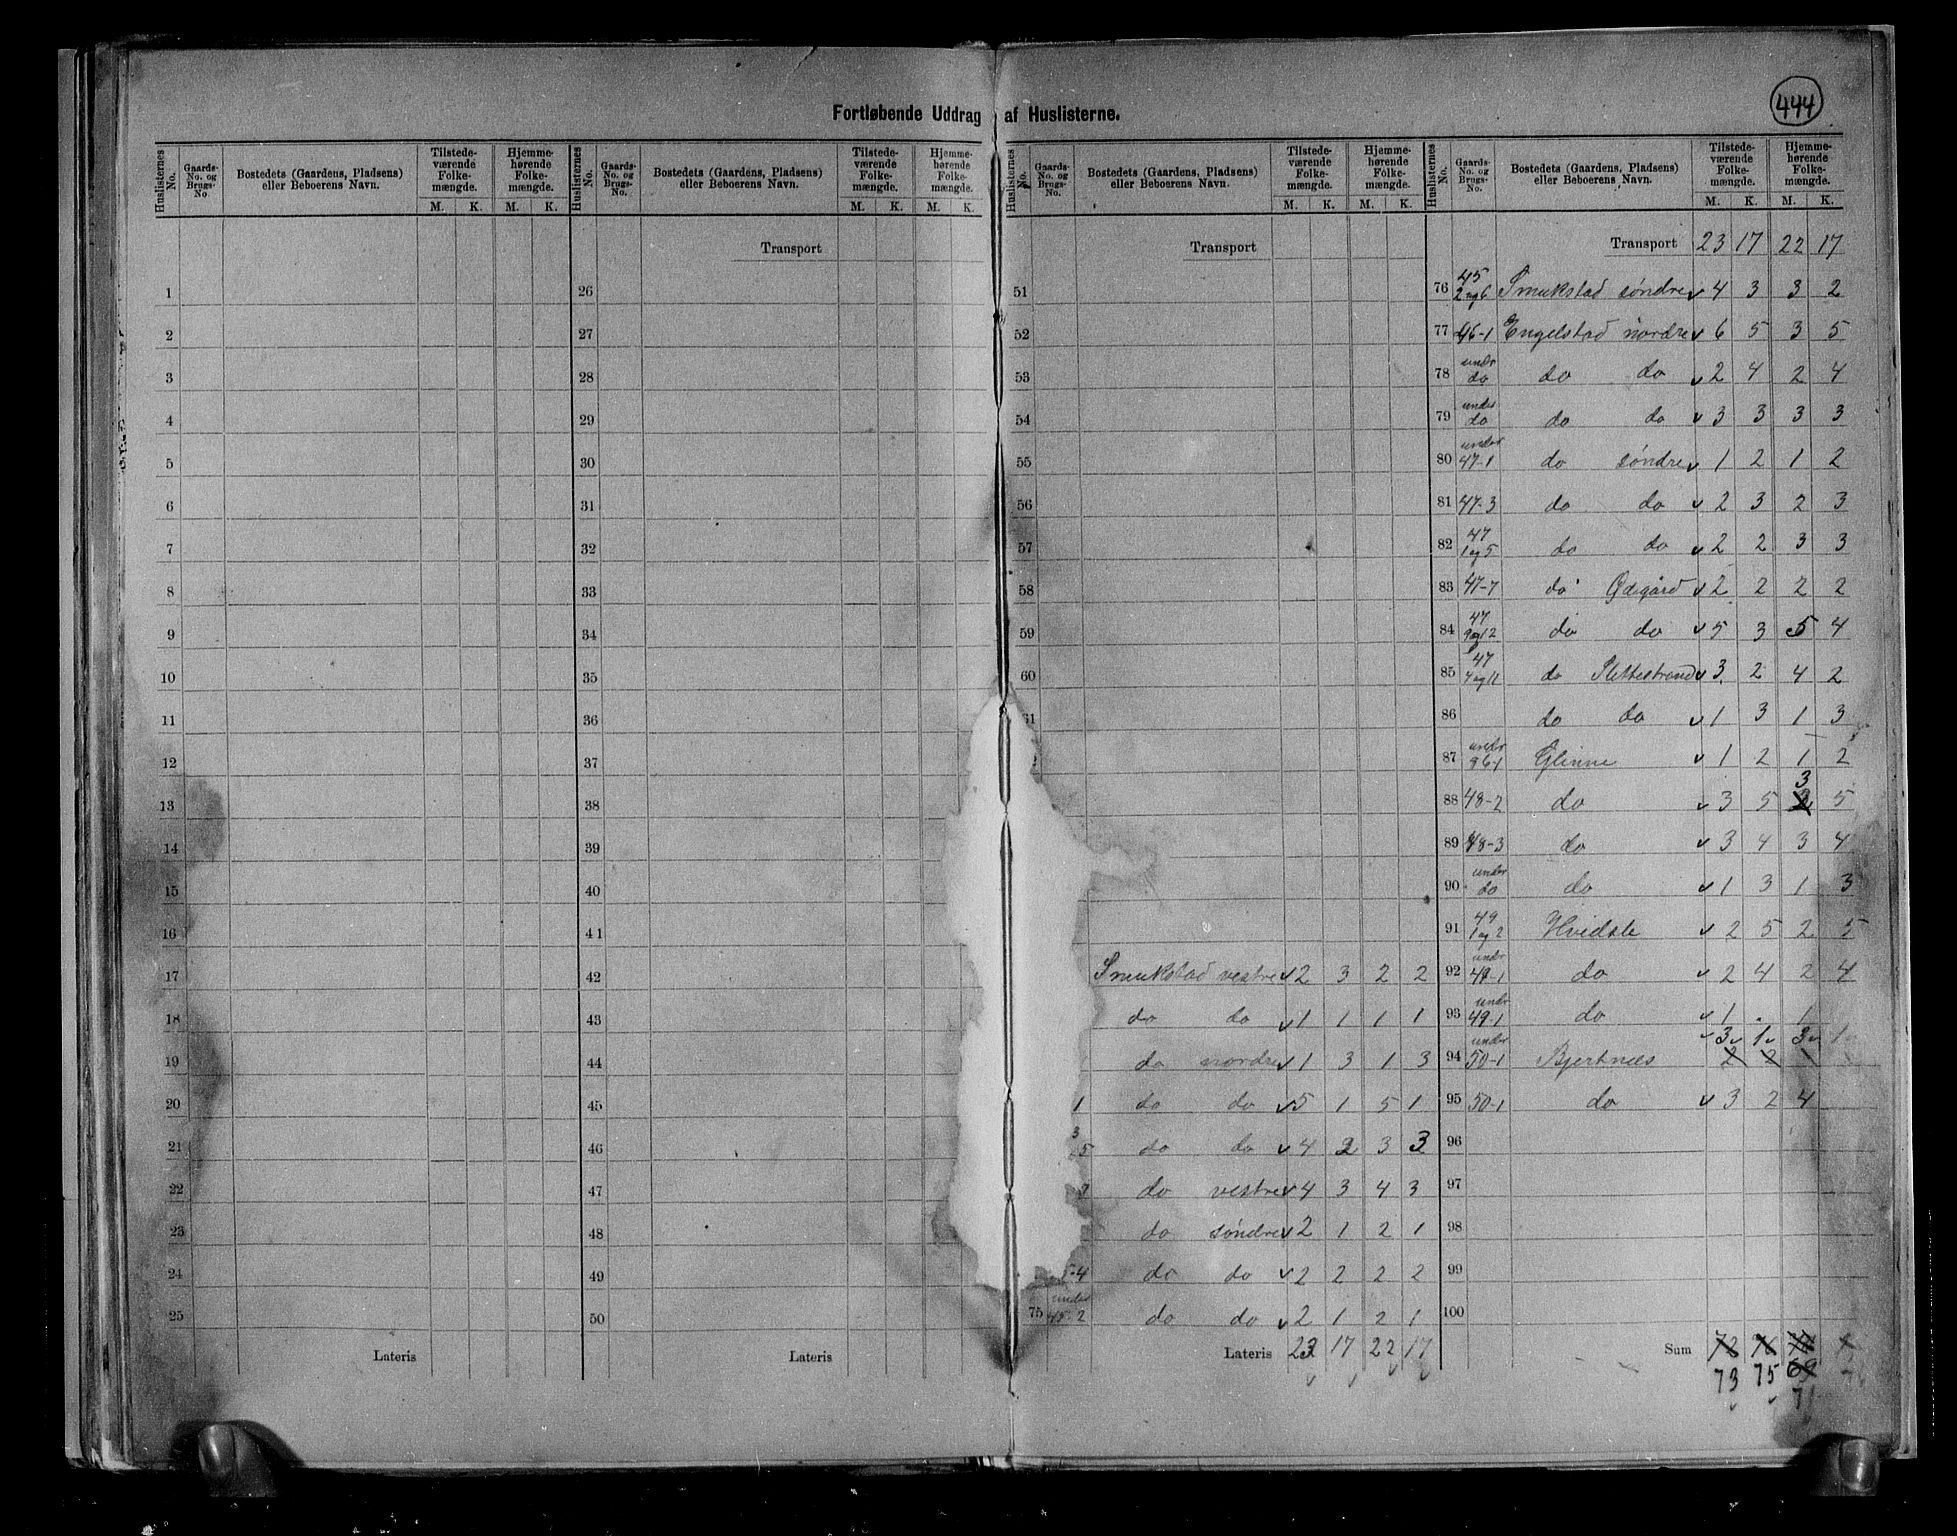 444
Fortløbende Uddrag af Huslisterne.
Huslisternes No. Gaards- No. og Brugs- No Bostedets (Gaardens, Pladsens) eller Beboerens Navn. Tilstede- værende Folke- mængde. M. K. Hjemme- hørende Folke- mængde. M. K.
Huslisternes No. Gaards- No. og Brugs- No. Bostedets (Gaardens, Pladsens) eller Beboerens Navn. Tilstede- værende Folke- mængde. M. K. Hjemme- hørende Folke- mængde. M. K.
Huslisternes No. Gaards- No. og Brugs- No. Bostedets (Gaardens, Pladsens) eller Beboerens Navn. Tilstede- værende Folke- mængde. M. K. Hjemme- hørende Folke- mængde. M. K.
Huslisternes No. Gaards- No. og Brugs- No. Bostedets (Gaardens, Pladsens) eller Beboerens Navn. Tilstede- værende Folke- mængde. M. K. Hjemme- hørende Folke- mængde. M. K.
1
2
3
4
5
6
7
8
9
10
11
12
13
14
15
16
17
18
19
20
21
22
23
24
25
Lateris
Transport
26
27
28
29
30
31
32
33
34
35
36
37
38
39
40
41
42
43
44
45
46
47
48
49
50
Lateris
Transport
51
52
53
54
55
56
57
58
59
60
61
Smukstad vestre v 2 3 2 2
do do v 1 1 1 1
do nordre v 1 3 1 3
1 do do v 5 1 5 1
3 5 do do v 4 2 3 3
do vestre v 4 3 4 3
do søndre v 2 1 2 1
-4 do do v 2 2 2 2
75 under 45-2 do do v 2 1 2 1
Lateris 23 17 22 17
Transport 23 17 22 17
76 45 2og6 Smukstad søndre v 4 3 3 2
77 46-1 Engelstad nordre v 6 5 3 5
78 under do do do v 2 4 2 4
79 under do do do v 3 3 3 3
80 under 47-1 do søndre v 1 2 1 2
81 47-3 do do v 2 3 2 3
82 47 1og5 do do v 2 2 3 3
83 47-7 do Ødegård v 2 2 2 2
84 47 9og12 do do v 5 3 5 4
85 47 4og11 do Slettestrand v 3 2 4 2
86 do do v 1 3 1 3
87 under 96-1 Glinne v 1 2 1 2
3
88 48-2 do v 3 5 5
89 48-3 do v 3 4 3 4
90 under do do v 1 3 1 3
91 49 1og2 Hvidste v 2 5 2 5
92 under 49-1 do v 2 4 2 4
93 under 49-1 do v 1 . 1
v 3 1 3 1
94 under 50-1 Bjertnæs 2 2
95 50-1 do v 3 2 4
96
97
98
99
100
Sum
73 75 69
71